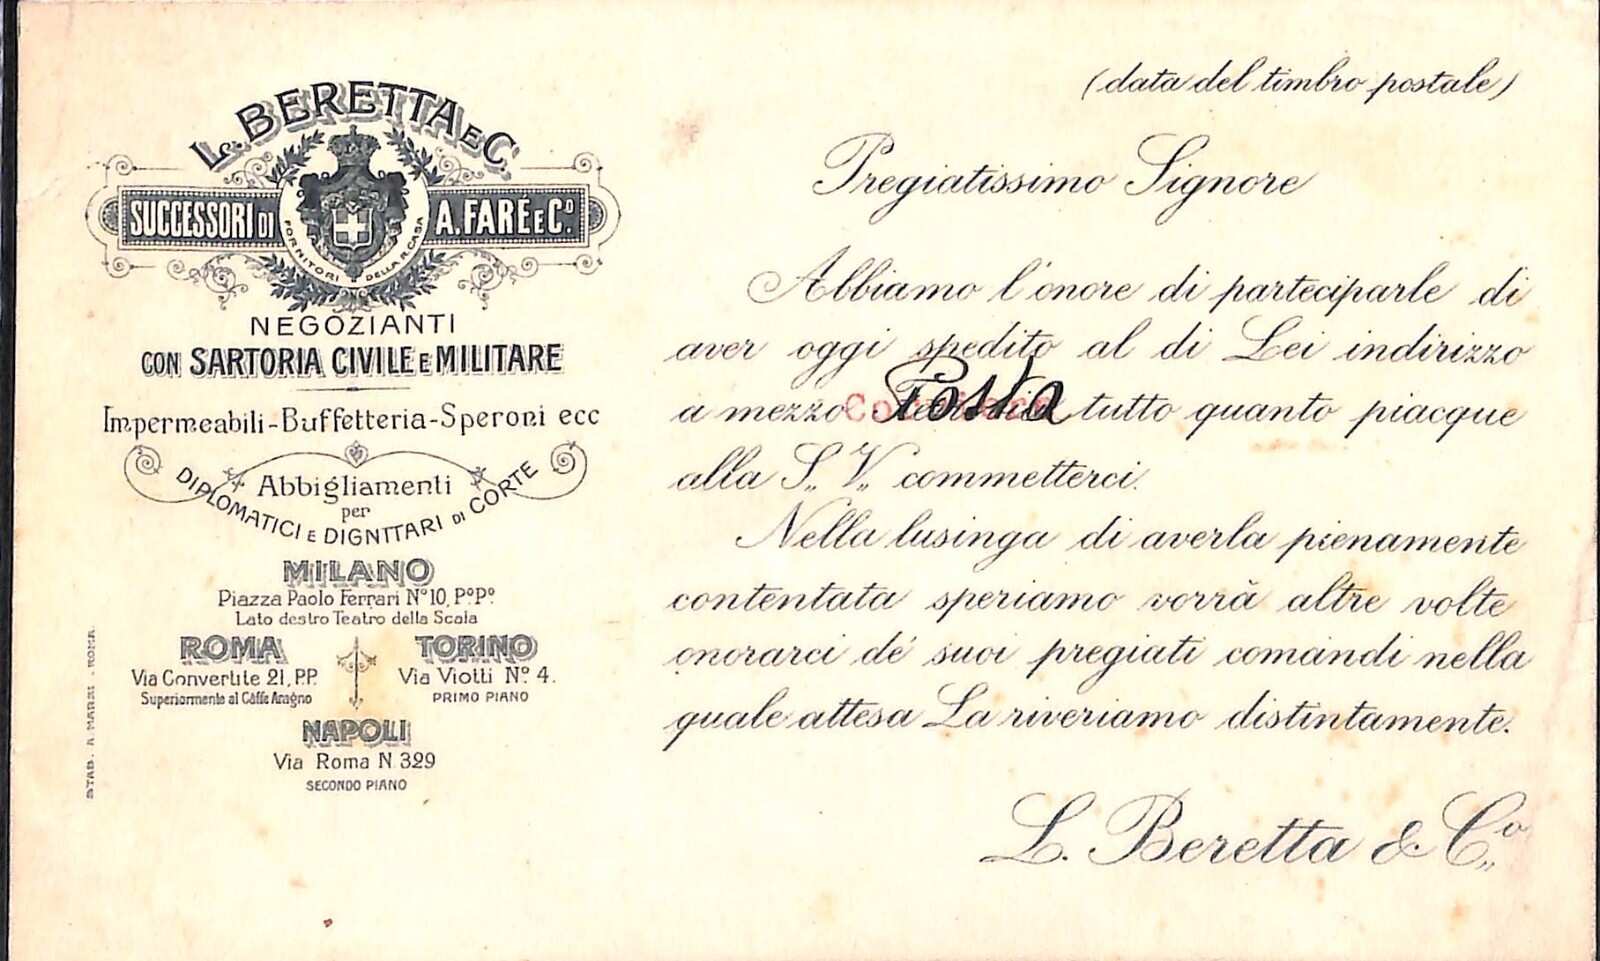 L. BERETTA E C.
SUCCESSORI DI A. FARÉ E C.º
FORNITORI DELLA R. CASA
NEGOZIANTI
CON SARTORIA CIVILE E MILITARE
Impermeabili-Buffetteria-Speroni ecc
Abbigliamenti
per
DIPLOMATICI E DIGNITARI DI CORTE
MILANO
Piazza Paolo Ferrari Nº 10, PºPº
Lato destro Teatro della Scala
ROMA
Via Convertite 21, P.P.
Superiormente al Càffe Aragno
TORINO
Via Viotti Nº 4.
PRIMO PIANO
NAPOLI
Via Roma N. 329
SECONDO PIANO
STAB. A. MARZI . ROMA
(data del timbro postale)
Pregiatissimo Signore
Abbiamo l'onore di parteciparle di
aver oggi spedito al di Lei indirizzo
a mezzo Posta tutto quanto piacque
alla S„ V„ commetterci.
Nella lusinga di averla pienamente
contentata speriamo vorrà altre volte
onorarci dé suoi pregiati comandi nella
quale attesa La riveriamo distintamente.
L. Beretta & C„º